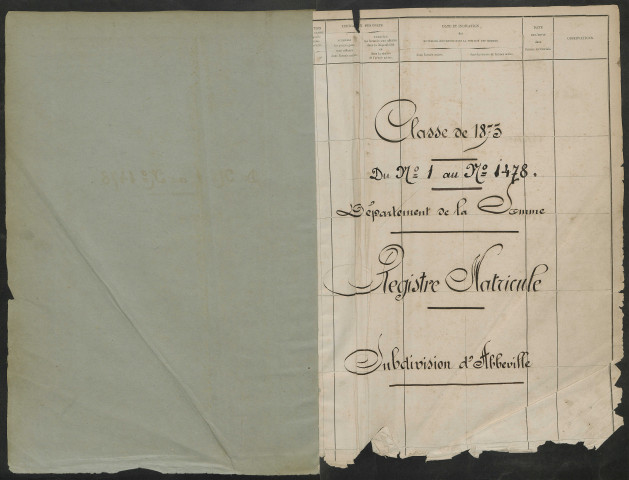 OBSERVATIONS.
Classe de 1873
Du Nº 1 au Nº 1478.
Département de la Somme
Registre Matricule
Subdivision d'Abbeville